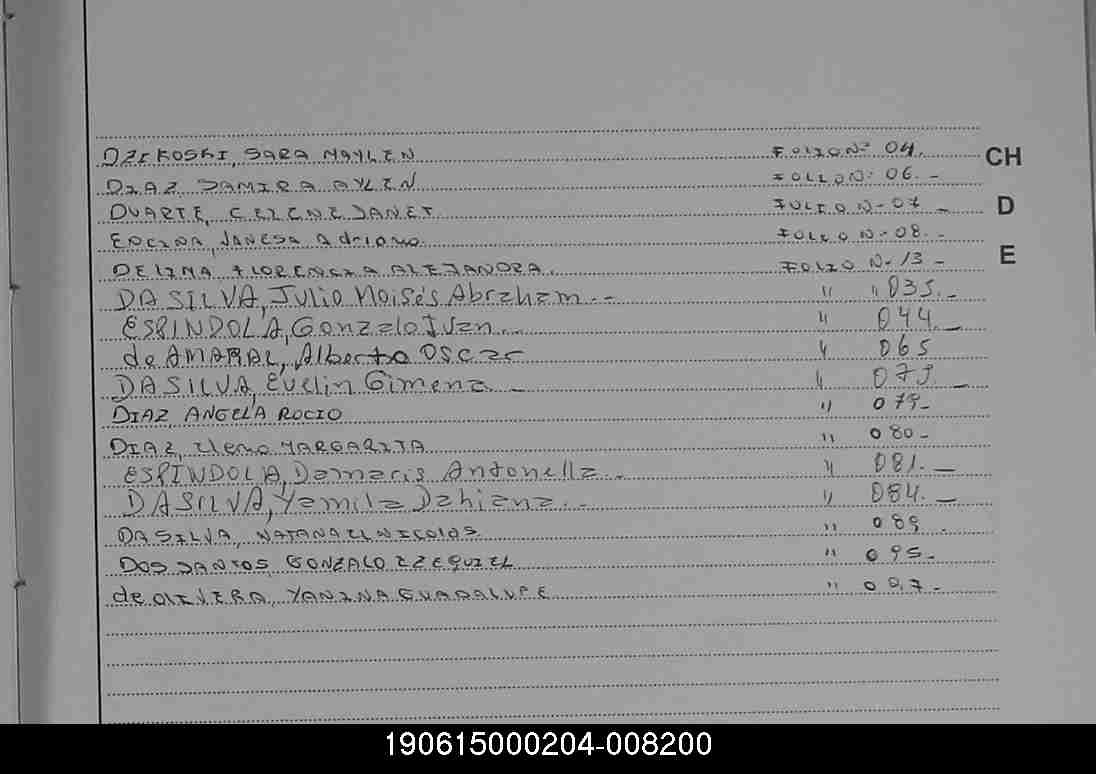 DZIKOSKI, SARA MAYLEN FOLIO Nº 04. CH
DIAZ SAMIRA AYLEN FOLIO Nº 06. -
DUARTE, CELENE JANET FOLIO N- 07 - D
ENCINA, VANESA Adriana. FOLIO N- 08. -
DELIMA FLORENCIA ALEJANDRA. FOLIO N- 13 - E
DA SILVA, Julio Moisés Abraham.-- " " 035.-
ESPINDOLA, Gonzalo Ivan.-- " 044.-
de AMARAL, Alberto OSCAR " 065
DA SILVA, Evelin Gimena - " 073 -
DIAZ, ANGELA ROCIO " 079-
DIAZ, Elena MARGARITA " 080-
ESPINDOLA, Damaris Antonella.- " 081.-
DA SILVA, Yamila Dahiana.- " 084.-
DA SILVA, NATANAEL NICOLAS. " 089.
DOS SANTOS, GONZALO EZEQUIEL " 095-
de OLIVERA, YANINA GUADALUPE " 097-
190615000204-008200